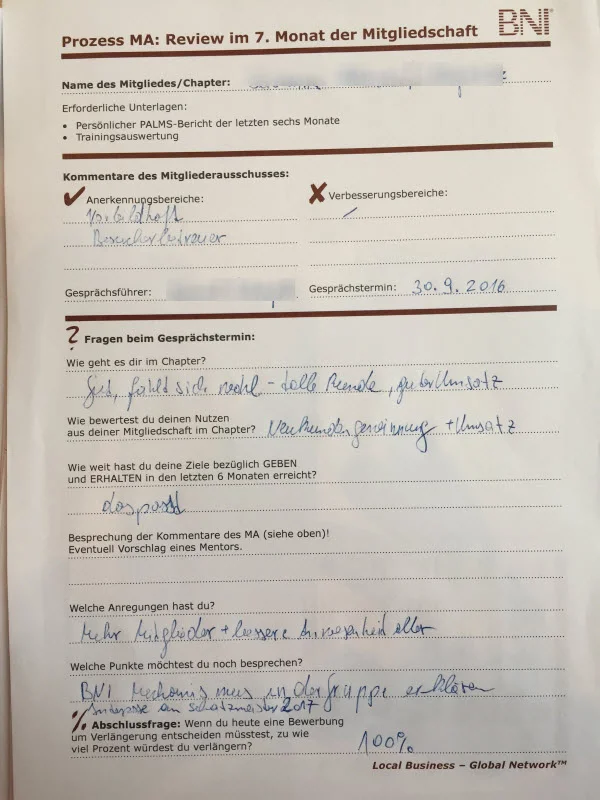 Prozess MA: Review im 7. Monat der Mitgliedschaft
BNI®
Name des Mitgliedes/Chapter:
Erforderliche Unterlagen:
• Persönlicher PALMS-Bericht der letzten sechs Monate
• Trainingsauswertung
Kommentare des Mitgliederausschusses:
✓ Anerkennungsbereiche:
✗ Verbesserungsbereiche:
Vorbildhaft
Besucherbetreuer
Gesprächsführer:
Gesprächstermin: 30.9.2016
? Fragen beim Gesprächstermin:
Wie geht es dir im Chapter?
Gut, fühlt sich wohl - tolle Runde, guter Umsatz
Wie bewertest du deinen Nutzen
aus deiner Mitgliedschaft im Chapter? Neukundengewinnung + Umsatz
Wie weit hast du deine Ziele bezüglich GEBEN
und ERHALTEN in den letzten 6 Monaten erreicht?
das passt
Besprechung der Kommentare des MA (siehe oben)!
Eventuell Vorschlag eines Mentors.
Welche Anregungen hast du?
Mehr Mitglieder + bessere Anwesenheit aller
Welche Punkte möchtest du noch besprechen?
BNI Mechanismus in der Gruppe erklären
Interesse an Schatzmeister 2017
% Abschlussfrage: Wenn du heute eine Bewerbung
um Verlängerung entscheiden müsstest, zu wie
viel Prozent würdest du verlängern? 100%
Local Business – Global Network™